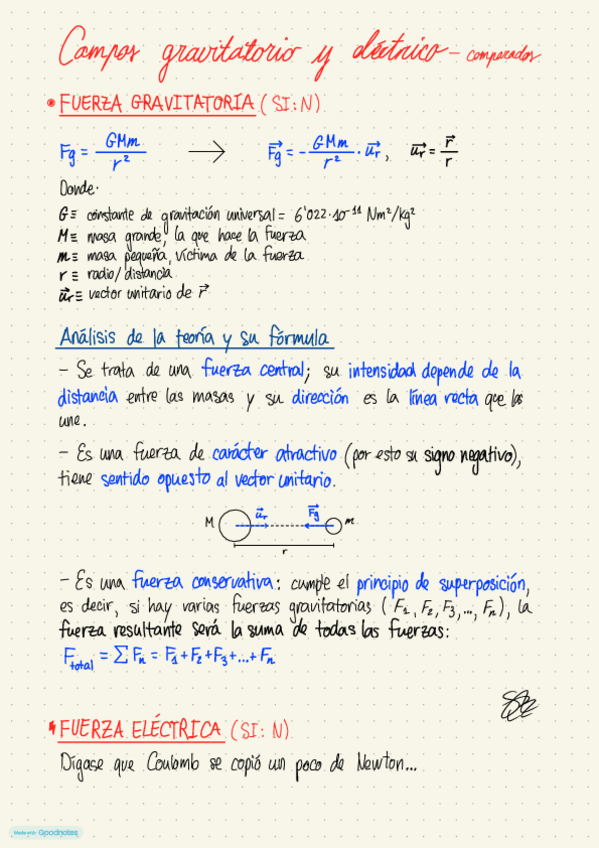 Campos gravitatorio y eléctrico - comparados
• FUERZA GRAVITATORIA (SI: N)
Fg = GMm / r² → F⃗g = - GMm / r² · u⃗r, u⃗r = r⃗ / r
Donde:
G ≡ constante de gravitación universal = 6'022·10⁻¹¹ Nm²/kg²
M ≡ masa grande, la que hace la fuerza
m ≡ masa pequeña, víctima de la fuerza
r ≡ radio/distancia
u⃗r ≡ vector unitario de r⃗
Análisis de la teoría y su fórmula
- Se trata de una fuerza central; su intensidad depende de la
distancia entre las masas y su dirección es la línea recta que las
une.
- Es una fuerza de carácter atractivo (por esto su signo negativo),
tiene sentido opuesto al vector unitario.
M u⃗r F⃗g m
r
- Es una fuerza conservativa: cumple el principio de superposición,
es decir, si hay varias fuerzas gravitatorias (F₁, F₂, F₃, ..., Fn), la
fuerza resultante será la suma de todas las fuerzas:
Ftotal = ΣFn = F₁+F₂+F₃+...+Fn
FUERZA ELÉCTRICA (SI: N)
Dígase que Coulomb se copió un poco de Newton...
Made with Goodnotes